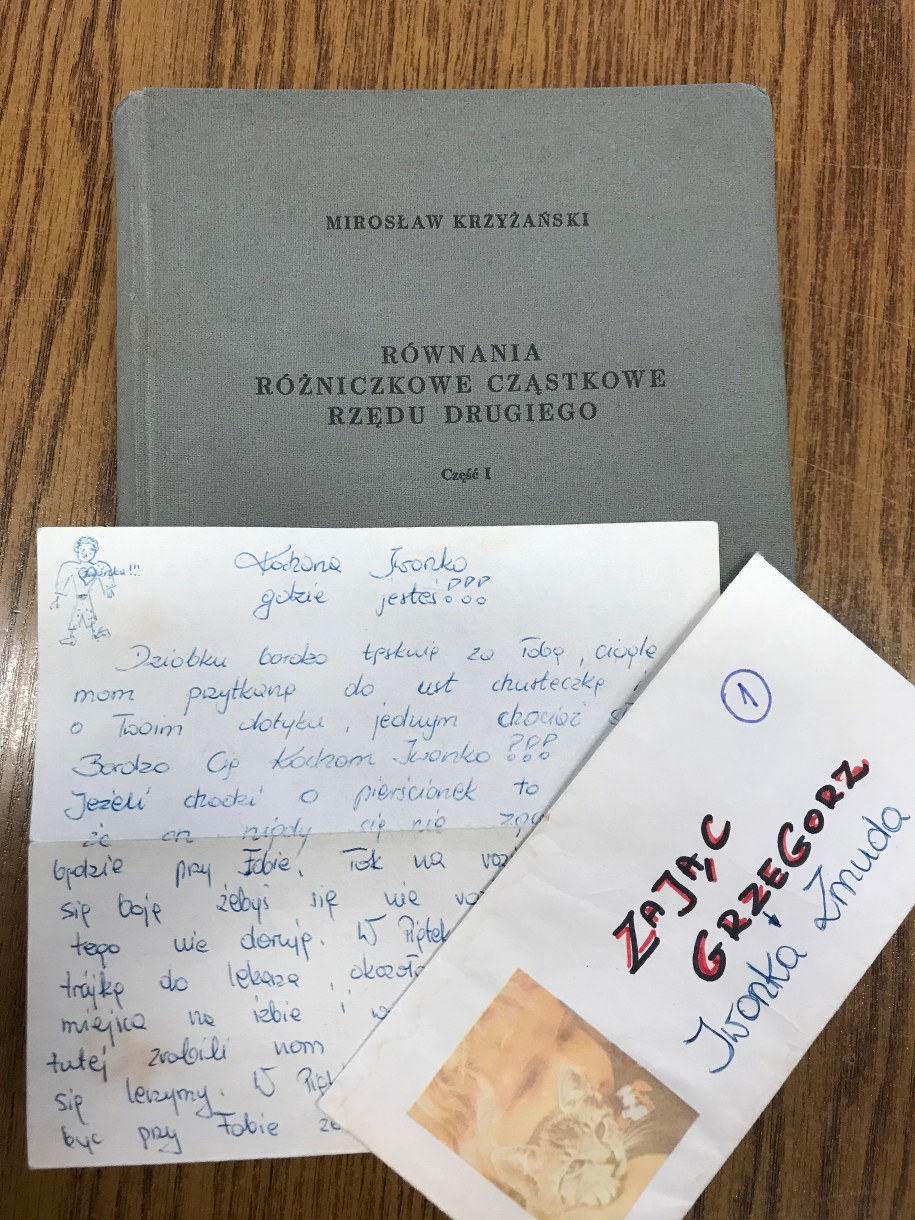 MIROSŁAW KRZYŻAŃSKI
RÓWNANIA
RÓŻNICZKOWE CZĄSTKOWE
RZĘDU DRUGIEGO
Część I
Kochana Iwonko
gdzie jesteś???
Dziobku bardzo tęsknię za Tobą, ciągle
mam przytkaną do ust chusteczkę
o Twoim dotyku, jednym chociaż
Bardzo Cię Kocham Iwonko???
Jeżeli chodzi o pierścionek to
że on nigdy się nie
będzie przy Tobie. Tak na
się boję żebyś się nie
tego nie daruję. W Piątek
trójkę do lekarza, okazało
miejsca na izbie i
tutej zrobili nom
się leczymy. W
być przy Tobie
1
ZAJĄC
GRZEGORZ
Iwonka Żmuda